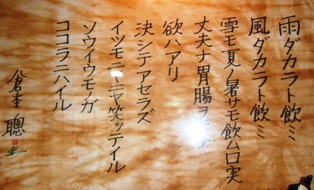 雨ダカラト飲ミ
風ダカラト飲ミ
雪モ夏ノ暑サモ飲ム口実
丈夫ナ胃腸ヲ
欲ハアリ
決シテアセラズ
イツモニコニコ笑ッテイル
ソウイウモノガ
ココラニハイル
倉本聰